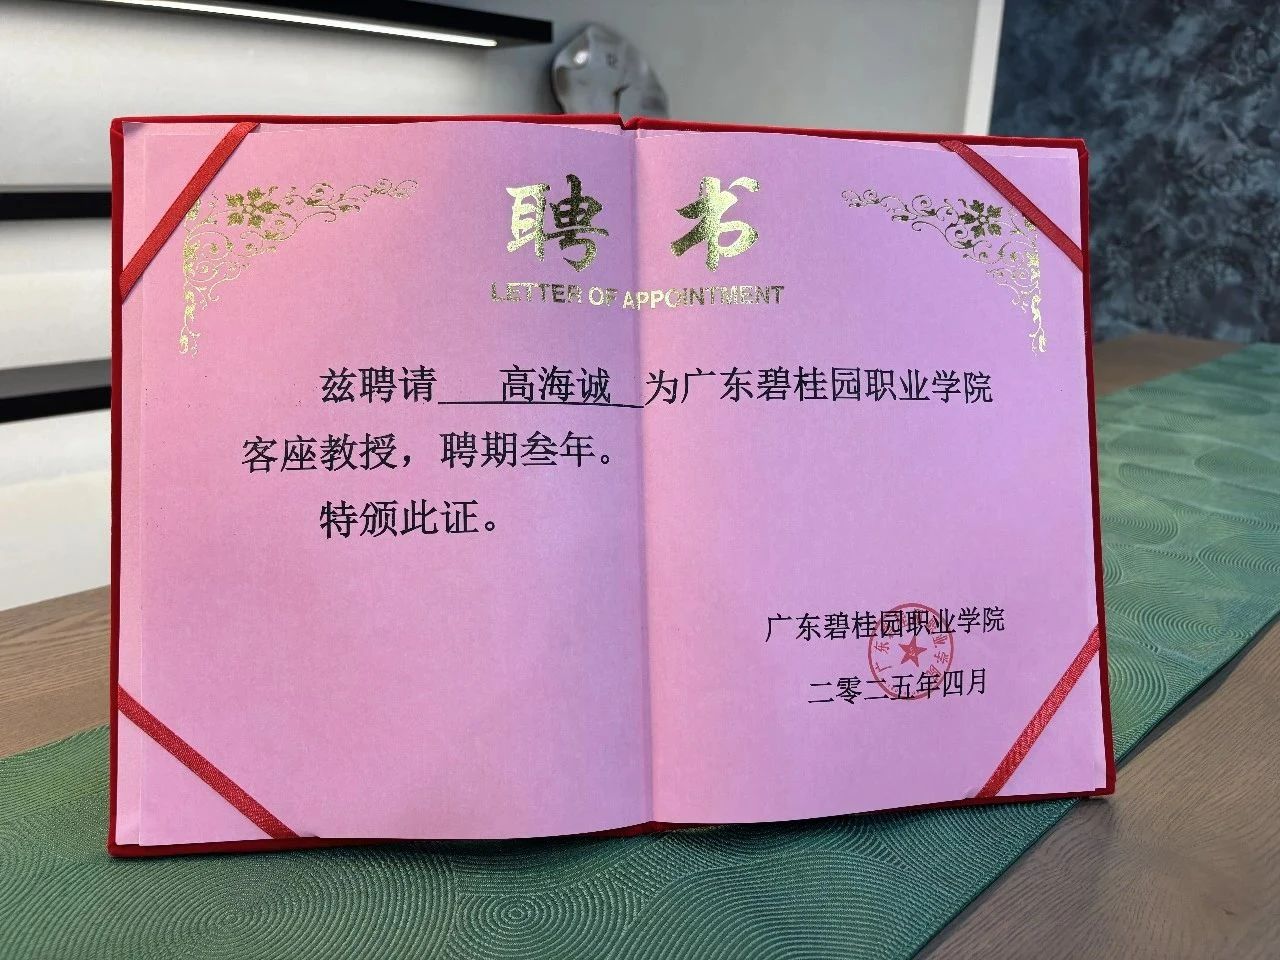 聘书
LETTER OF APPOINTMENT
兹聘请 高海诚 为广东碧桂园职业学院
客座教授，聘期叁年。
特颁此证。
广东碧桂园职业学院
二零二五年四月